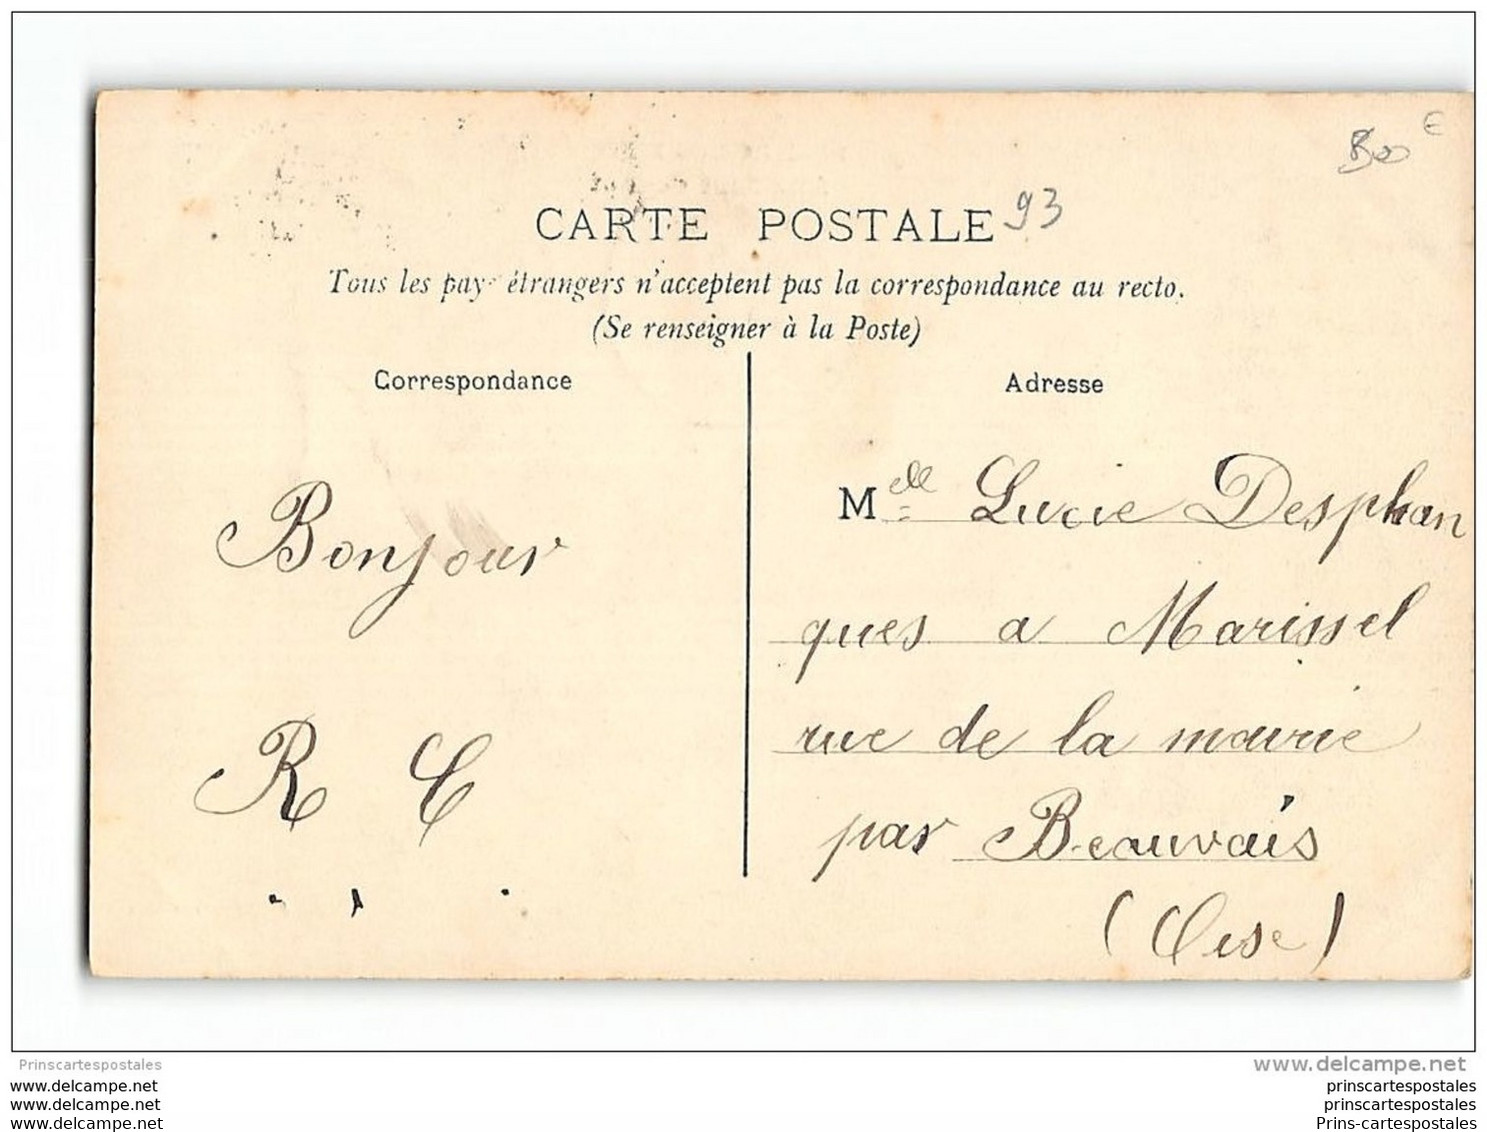 93
CARTE POSTALE
Tous les pays étrangers n'acceptent pas la correspondance au recto.
(Se renseigner à la Poste)
Correspondance
Bonjour
R C
Adresse
Melle Lucie Desphan
ques a Marissel
rue de la mairie
par Beauvais
(Oise)
Prinscartespostales
www.delcampe.net
www.delcampe.net
www.delcampe.net
www.delcampe.net
prinscartespostales
prinscartespostales
Prins-cartespostales